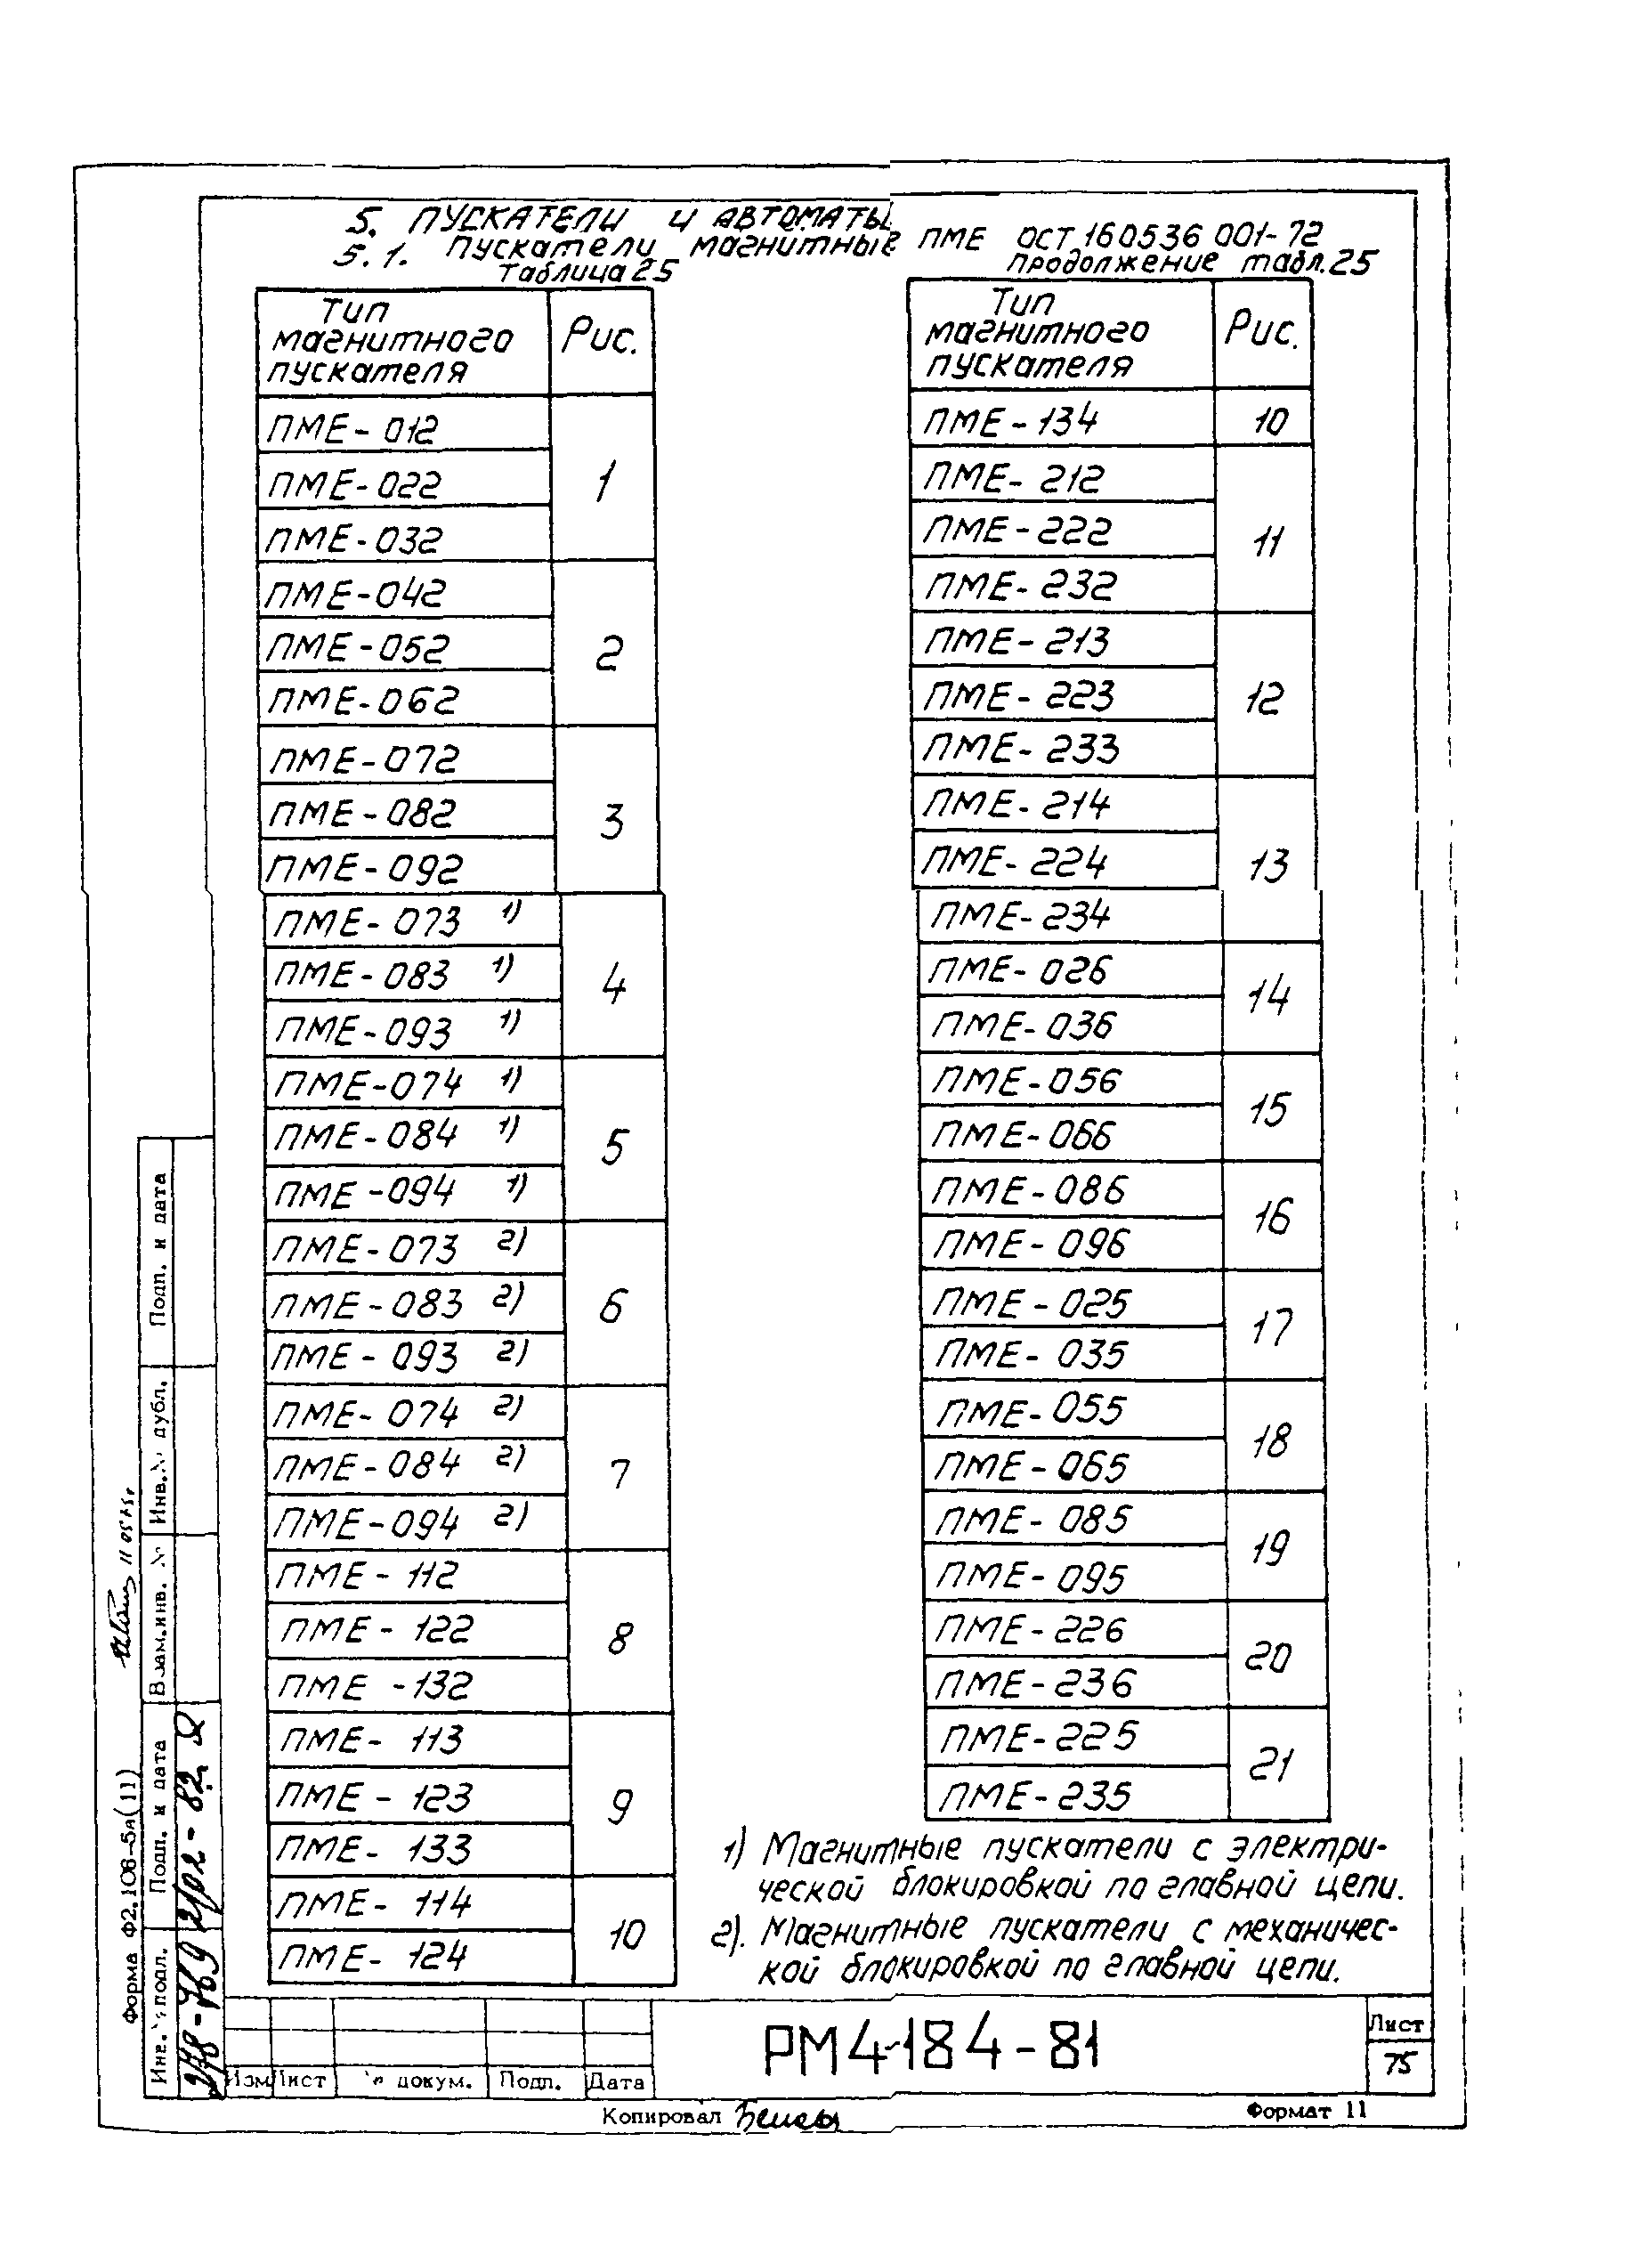 5. ПУСКАТЕЛИ И АВТОМАТЫ
5.1. Пускатели магнитные ПМЕ ОСТ 160536 001-72
Таблица 25
Тип магнитного пускателя Рис.
ПМЕ-012 1
ПМЕ-022
ПМЕ-032
ПМЕ-042 2
ПМЕ-052
ПМЕ-062
ПМЕ-072 3
ПМЕ-082
ПМЕ-092
ПМЕ-073 1) 4
ПМЕ-083 1)
ПМЕ-093 1)
ПМЕ-074 1) 5
ПМЕ-084 1)
ПМЕ-094 1)
ПМЕ-073 2) 6
ПМЕ-083 2)
ПМЕ-093 2)
ПМЕ-074 2) 7
ПМЕ-084 2)
ПМЕ-094 2)
ПМЕ-112 8
ПМЕ-122
ПМЕ-132
ПМЕ-113 9
ПМЕ-123
ПМЕ-133
ПМЕ-114 10
ПМЕ-124
продолжение табл.25
Тип магнитного пускателя Рис.
ПМЕ-134 10
ПМЕ-212 11
ПМЕ-222
ПМЕ-232
ПМЕ-213 12
ПМЕ-223
ПМЕ-233
ПМЕ-214 13
ПМЕ-224
ПМЕ-234
ПМЕ-026 14
ПМЕ-036
ПМЕ-056 15
ПМЕ-066
ПМЕ-086 16
ПМЕ-096
ПМЕ-025 17
ПМЕ-035
ПМЕ-055 18
ПМЕ-065
ПМЕ-085 19
ПМЕ-095
ПМЕ-226 20
ПМЕ-236
ПМЕ-225 21
ПМЕ-235
1) Магнитные пускатели с электри-
ческой блокировкой по главной цепи.
2). Магнитные пускатели с механичес-
кой блокировкой по главной цепи.
Форма Ф2.108-5а(11)
Инв.№ подл.
Подп. и дата
Взам.инв. №
Инв.№ дубл.
Подп. и дата
Изм Лист № докум. Подп. Дата
РМ4-184-81
Лист
75
Копировал
Формат 11